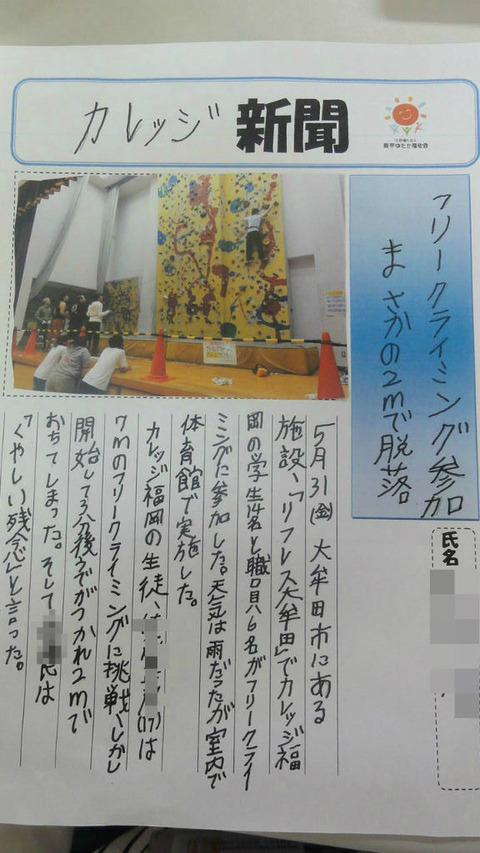 カレッジ新聞
鞍手ゆたか福祉会
フリークライミング参加
まさかの2mで脱落
氏名
5月31(金)大牟田市にある
施設、「リフレス大牟田」でカレッジ福
岡の学生14名と職員6名がフリークライ
ミングに参加した。天気は雨だったが室内で
体育館で実施した。
カレッジ福岡の生徒、(17)は
7mのフリークライミングに挑戦、しかし
開始して3分後うでがつかれ2mで
おちてしまった。そして氏は
「くやしい残念」と言った。